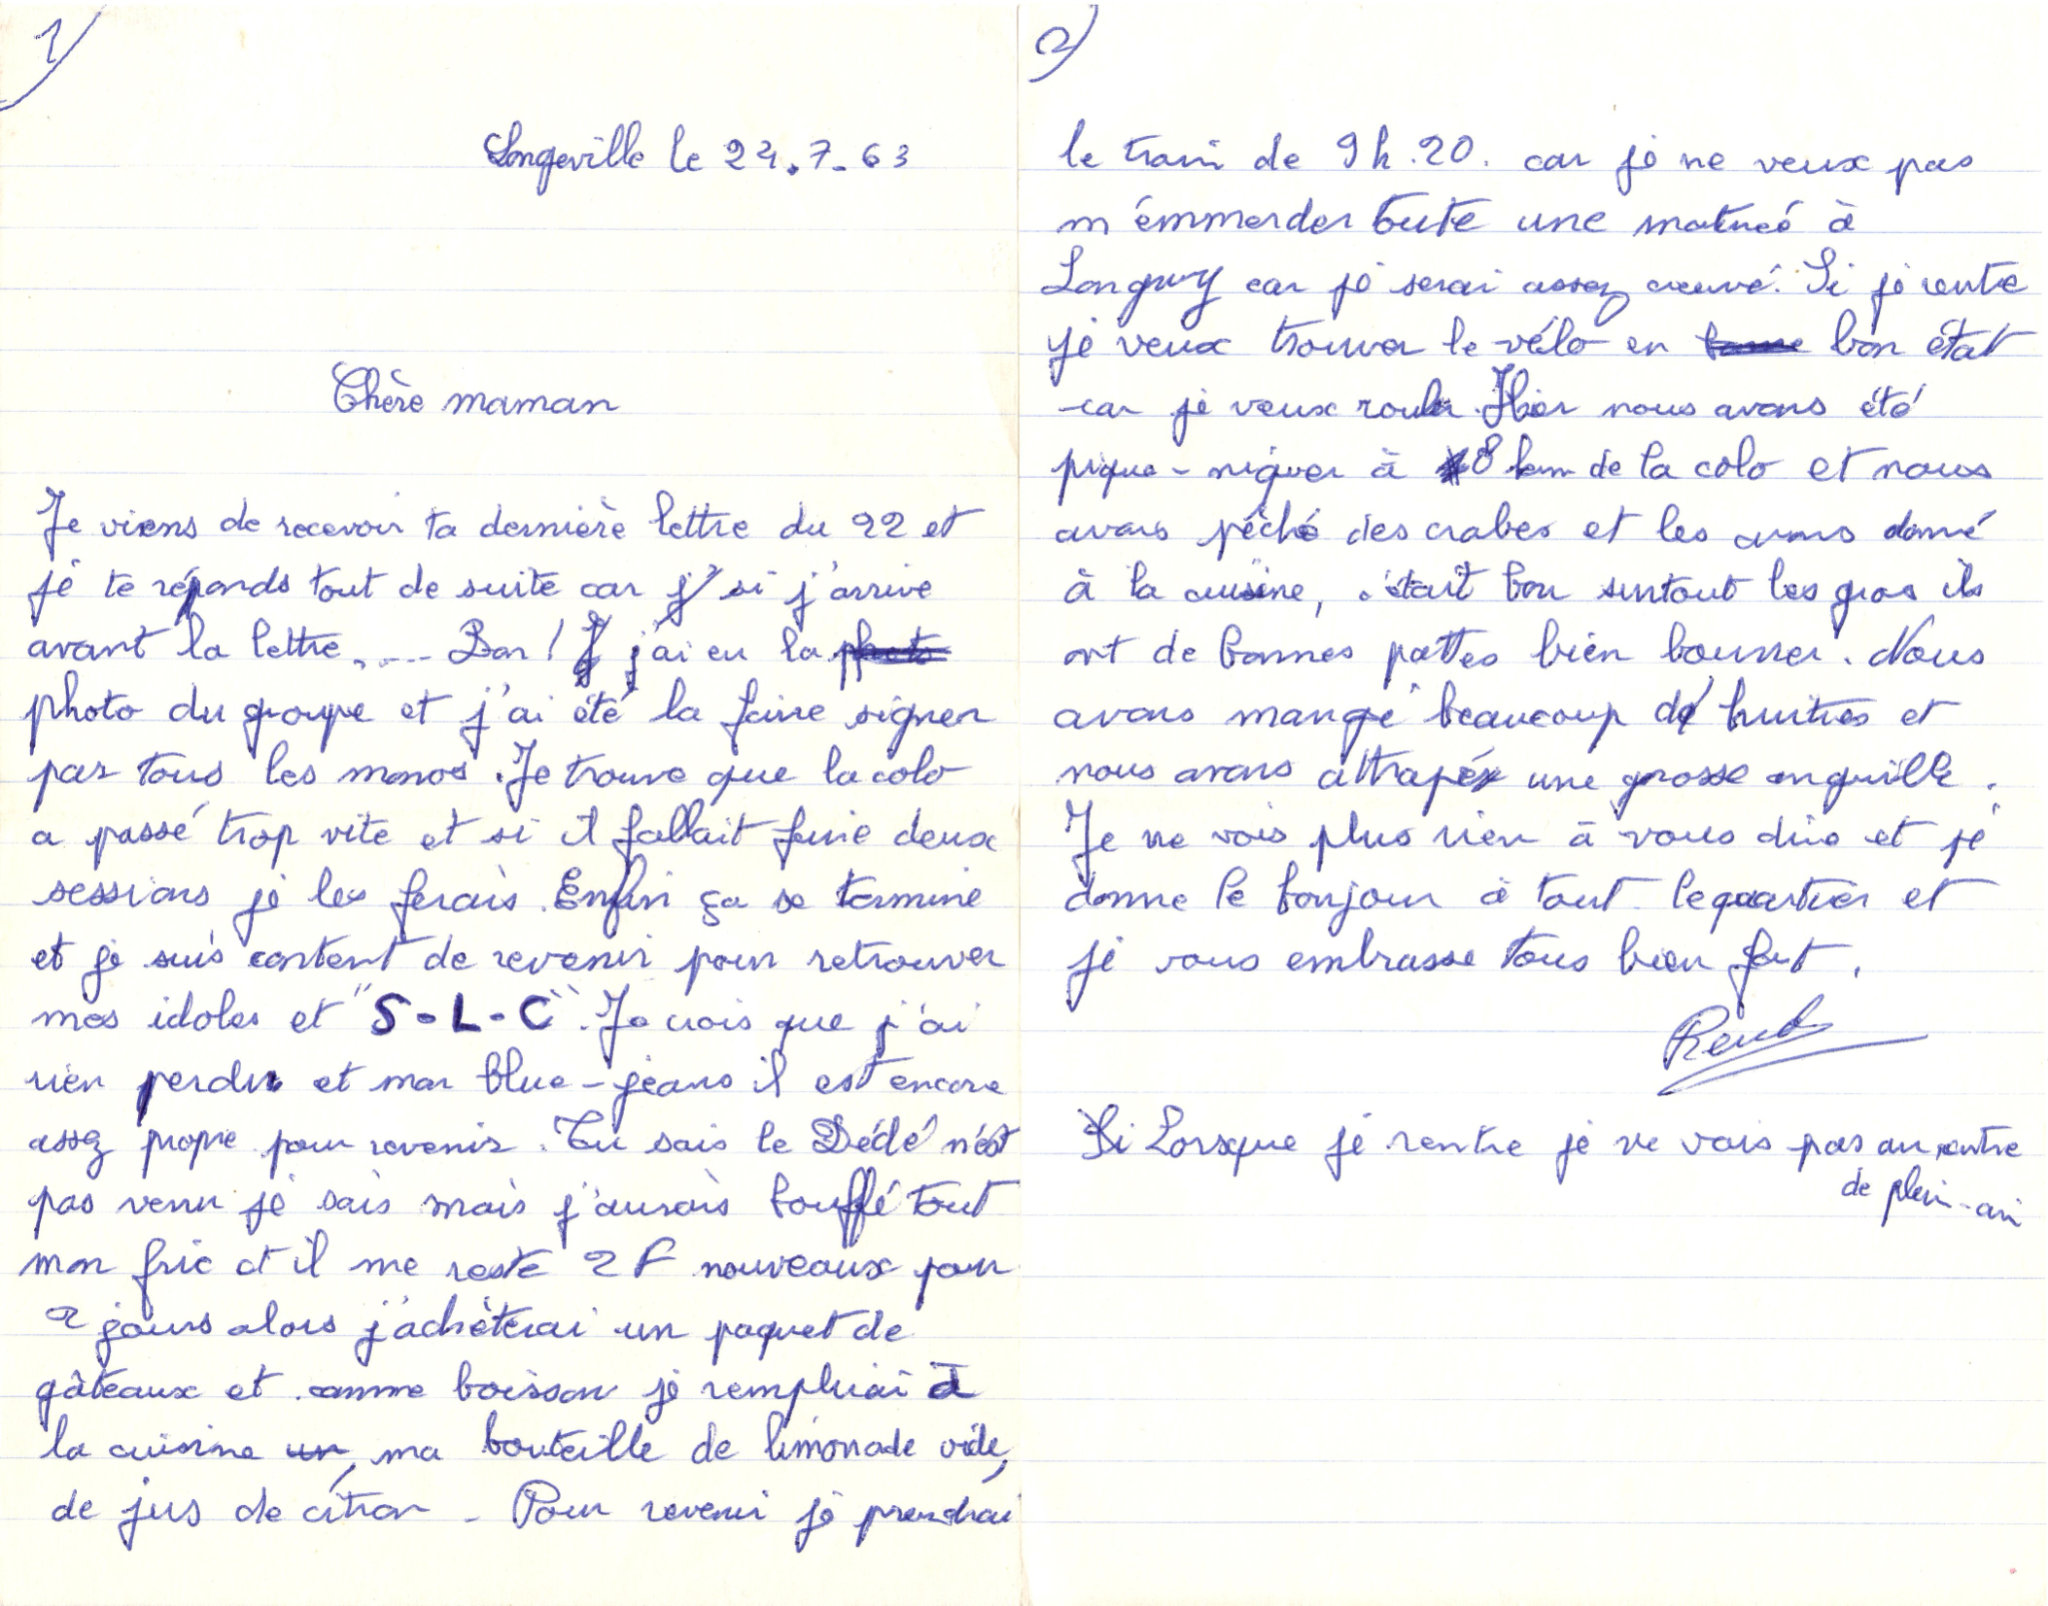 1)
Longeville le 24.7-63
Chère maman
Je viens de recevoir ta dernière lettre du 22 et
je te réponds tout de suite car si j'arrive
avant la lettre,.... Bon! j'ai eu la photo
photo du groupe et j'ai été la faire signer
par tous les monos. Je trouve que la colo
a passé trop vite et si il fallait faire deux
sessions je les ferais. Enfin ça se termine
et je suis content de revenir pour retrouver
mes idoles et "S-L-C". Je crois que j'ai
rien perdu et mon blue-jeans il est encore
assez propre pour revenir. Tu sais le Dédé n'est
pas venu je sais mais j'aurais bouffé tout
mon fric et il me reste 2F nouveaux pour
2 jours alors j'achèterai un paquet de
gâteaux et comme boisson je remplirai à
la cuisine un, ma bouteille de limonade vide,
de jus de citron - Pour revenir je prendrai
2)
le train de 9h.20. car je ne veux pas
m'émmerder toute une matineé à
Longwy car je serai assez creuvé. Si je rentre
je veux trouver le vélo en bon état
car je veux rouler. Hier nous avons été
pique-niquer à 8 km de la colo et nous
avons pêché des crabes et les avons donné
à la cuisine, c'était bon surtout les gros ils
ont de bonnes pattes bien bourrer. Nous
avons mangé beaucoup d'huitres et
nous avons attrapé une grosse anguille.
Je ne vois plus rien à vous dire et je
donne le bonjour à tout le quartier et
je vous embrasse tous bien fort.
Si Lorsque je rentre je ne vais pas au centre
de plein-air